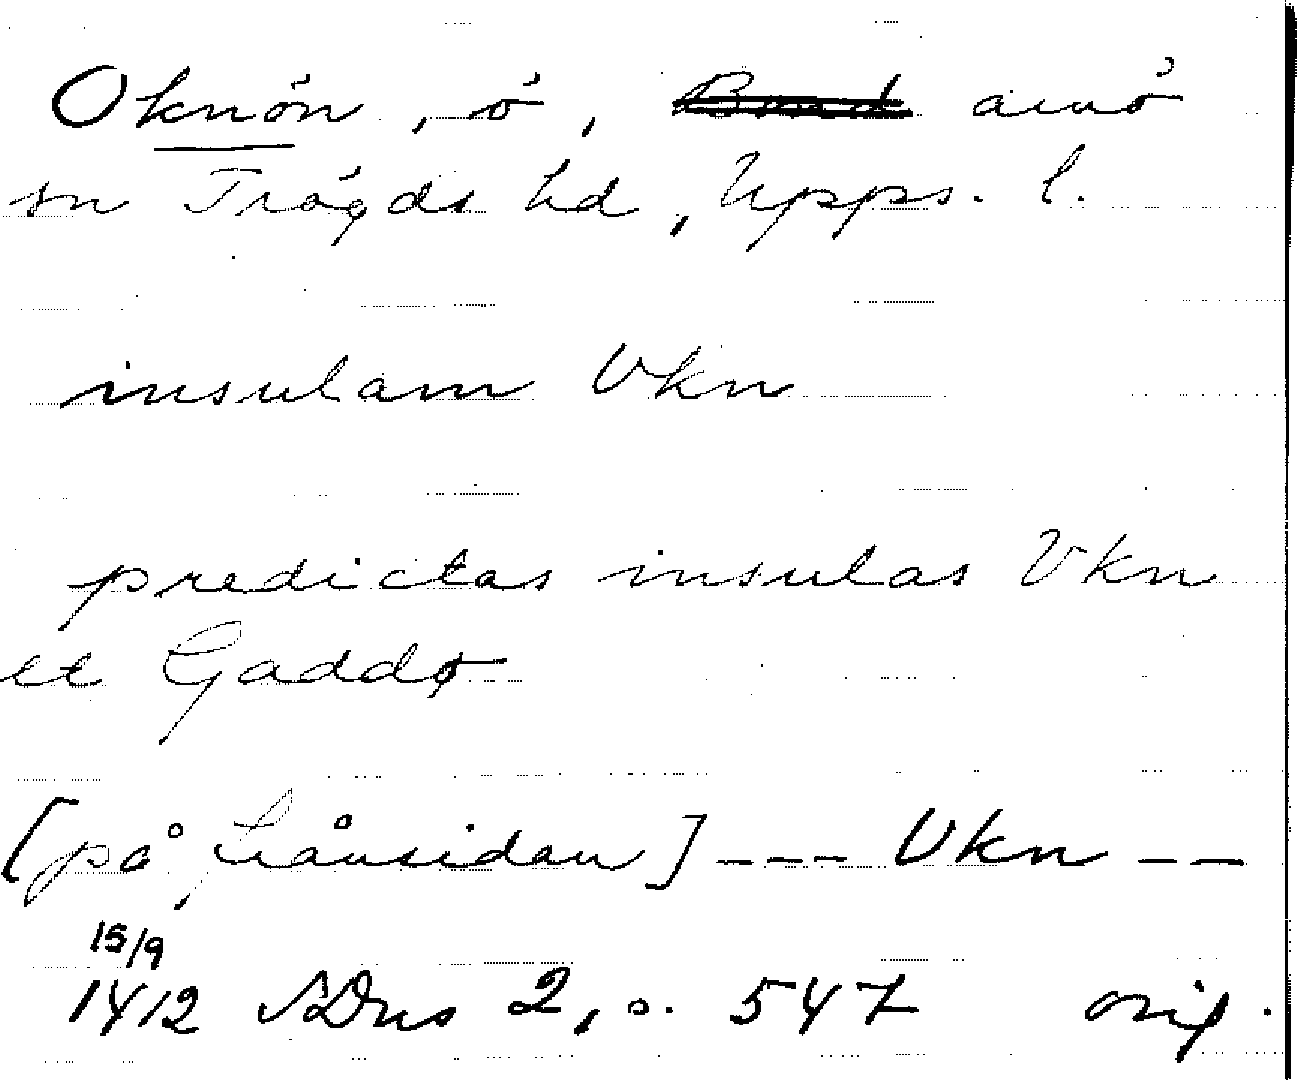 Oknön, ö, Arnö
sn Trögds hd, Upps. l.
insulam Vkn
predictas insulas Vkn
et Gaddø
[på frånsidan] --- Vkn --
15/9
1412 SDns 2, s. 547 orig.